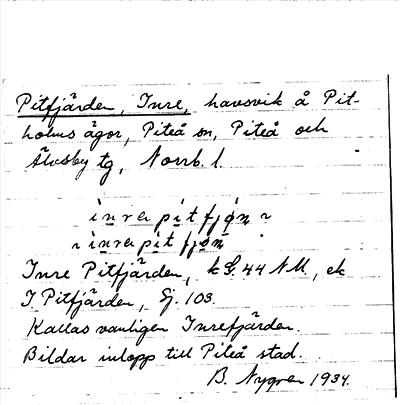 Pitfjärden, Inre, havsvik å Pit-
holms ägor, Piteå sn, Piteå och
Älvsby tg, Norrb. l.
inra pit fjø̱n
inra pit fjøn
Inre Pitfjärden, kS. 44 NM, ek
I Pitfjärden, Sj. 103.
Kallas vanligen Inrefjärden.
Bildar inlopp till Piteå stad.
B. Nygren 1934.